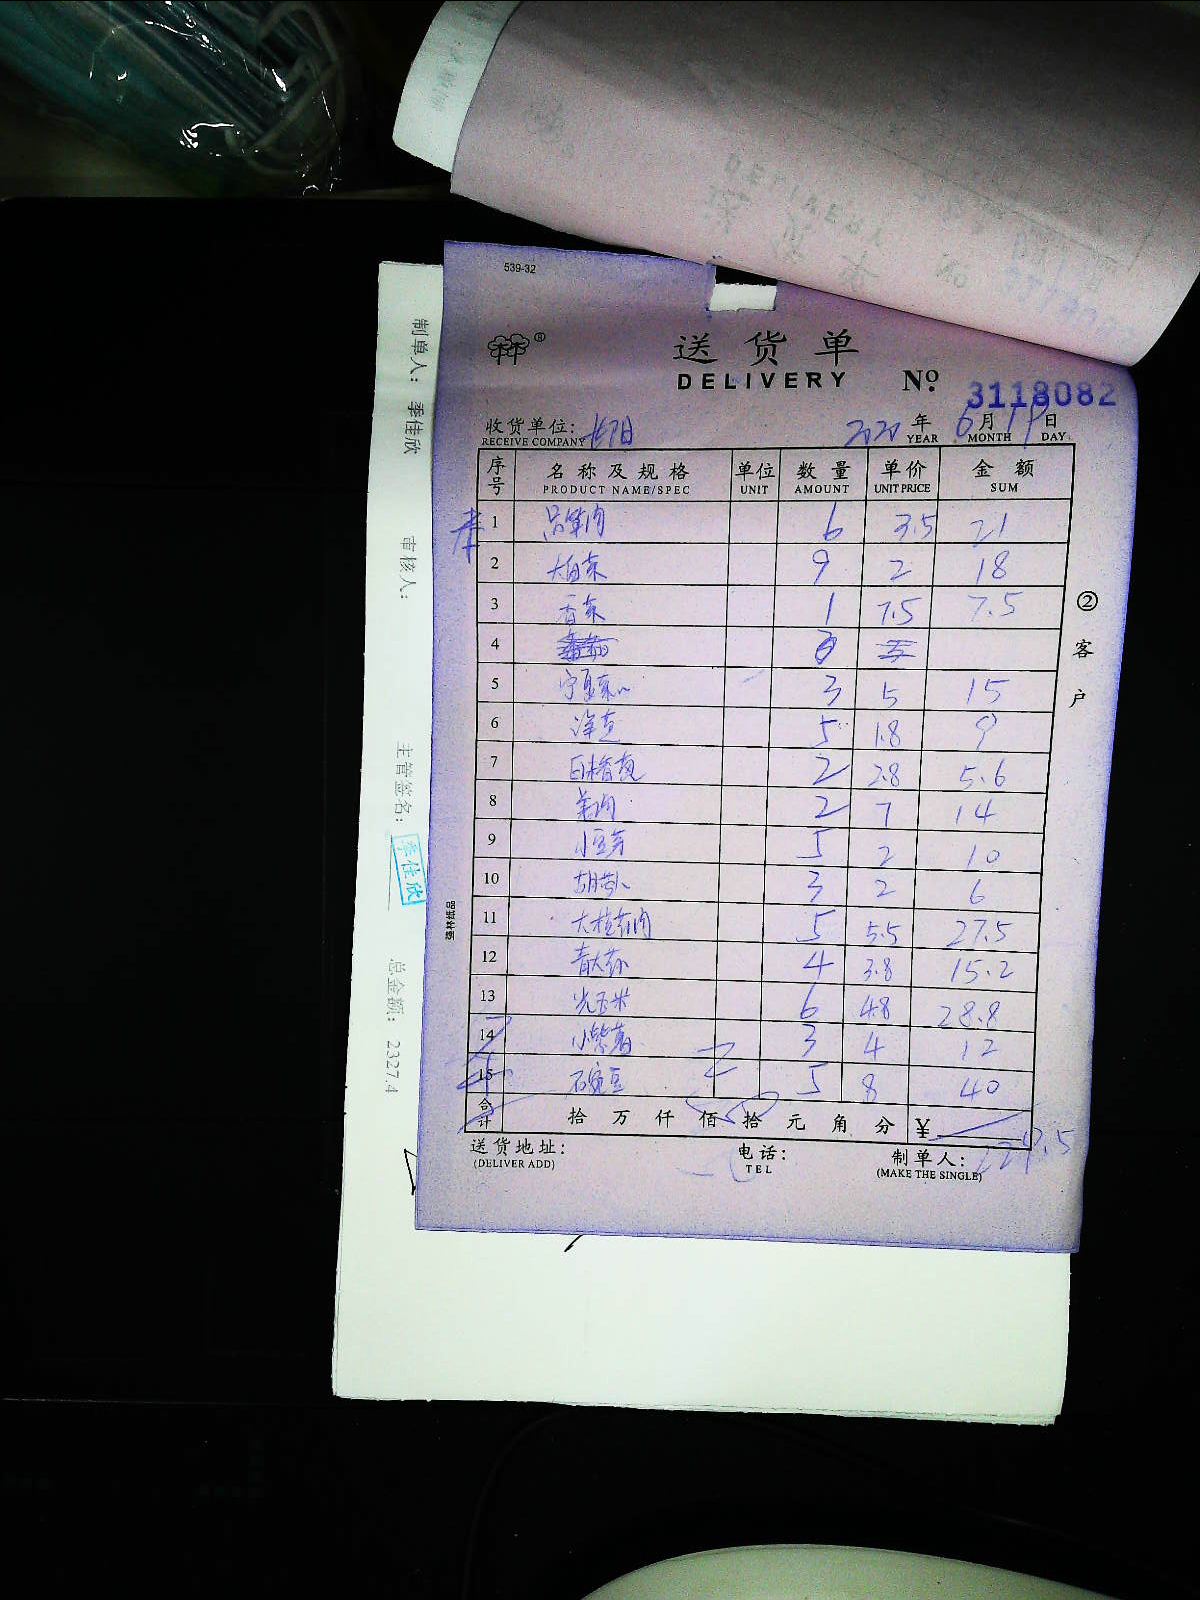 539-32
送货单
DELIVERY No. 3118082
收货单位:
RECEIVE COMPANY
2020年6月19日
YEAR MONTH DAY
序号 名称及规格 单位 数量 单价 金额
PRODUCT NAME/SPEC UNIT AMOUNT UNIT PRICE SUM
1 6 3.5 21
2 大白菜 9 2 18
3 香菜 1 7.5 7.5
4
5 宁夏菜心 3 5 15
6 5 1.8 9
7 2 2.8 5.6
8 2 7 14
9 小豆芽 5 2 10
10 3 2 6
11 5 5.5 27.5
12 4 3.8 15.2
13 光玉米 6 4.8 28.8
14 小紫薯 3 4 12
15 5 8 40
合计 拾万仟佰拾元角分 ¥
229.5
送货地址:
(DELIVER ADD)
电话:
TEL
制单人:
(MAKE THE SINGLE)
②客户
制单人: 季佳欣
审核人:
主管签名: 季佳欣
总金额: 2327.4